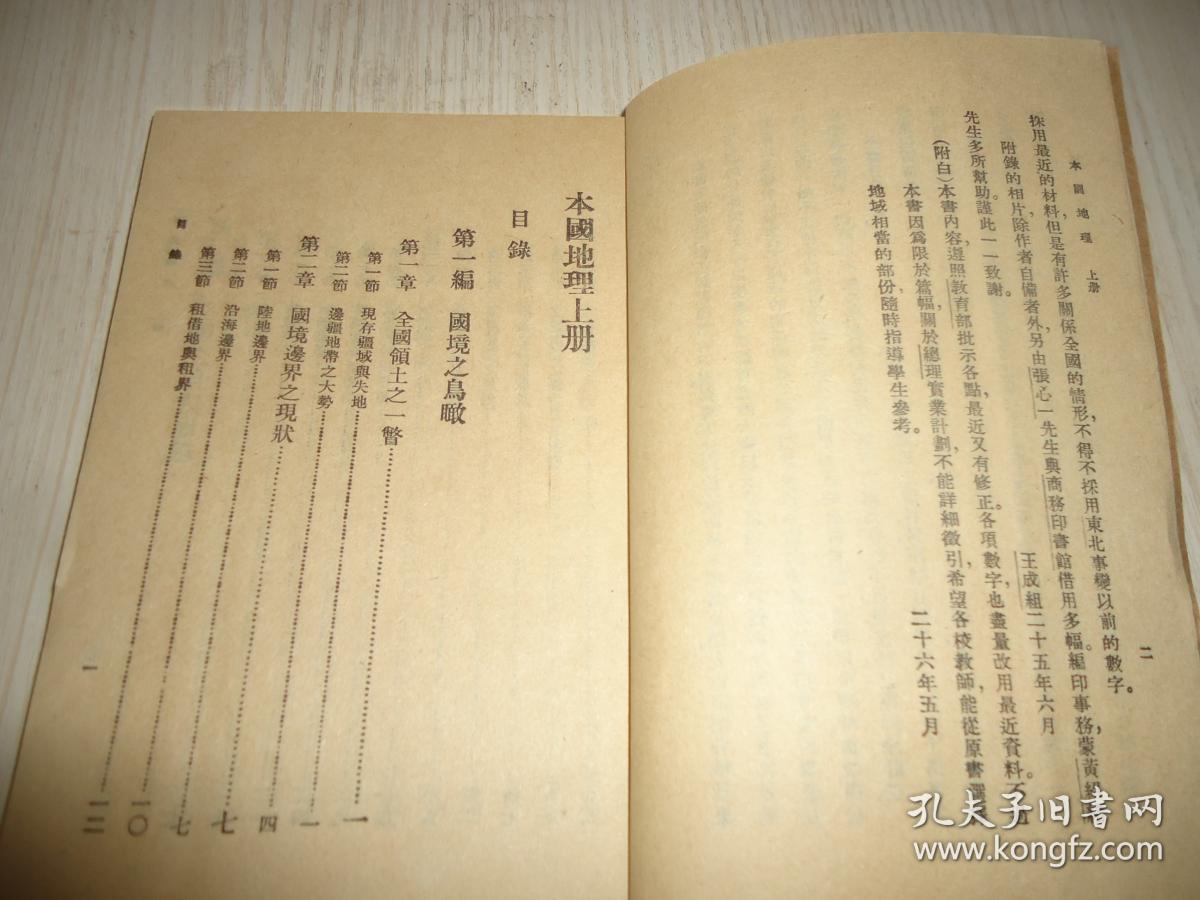 本國地理 上册
二
採用最近的材料,但是有許多關係全國的情形,不得不採用東北事變以前的數字。
附錄的相片,除作者自備者外,另由張心一先生與商務印書館借用多幅。編印事務,蒙黃
先生多所幫助,謹此一一致謝。
王成組 二十五年六月
(附白)本書內容,遵照教育部批示各點,最近又有修正。各項數字也盡量改用最近資料。不
本書因為限於篇幅,關於總理實業計劃,不能詳細徵引,希望各校教師,能從原書選
地域相當的部份,隨時指導學生參考。
二十六年五月
本國地理上册
目錄
第一編 國境之鳥瞰
第一章 全國領土之一瞥 一
第一節 現存疆域與失地 一
第二節 邊疆地帶之大勢 四
第二章 國境邊界之現狀 七
第一節 陸地邊界 七
第二節 沿海邊界 一〇
第三節 租借地與租界 一二
目錄
一
孔夫子旧书网
www.kongfz.com